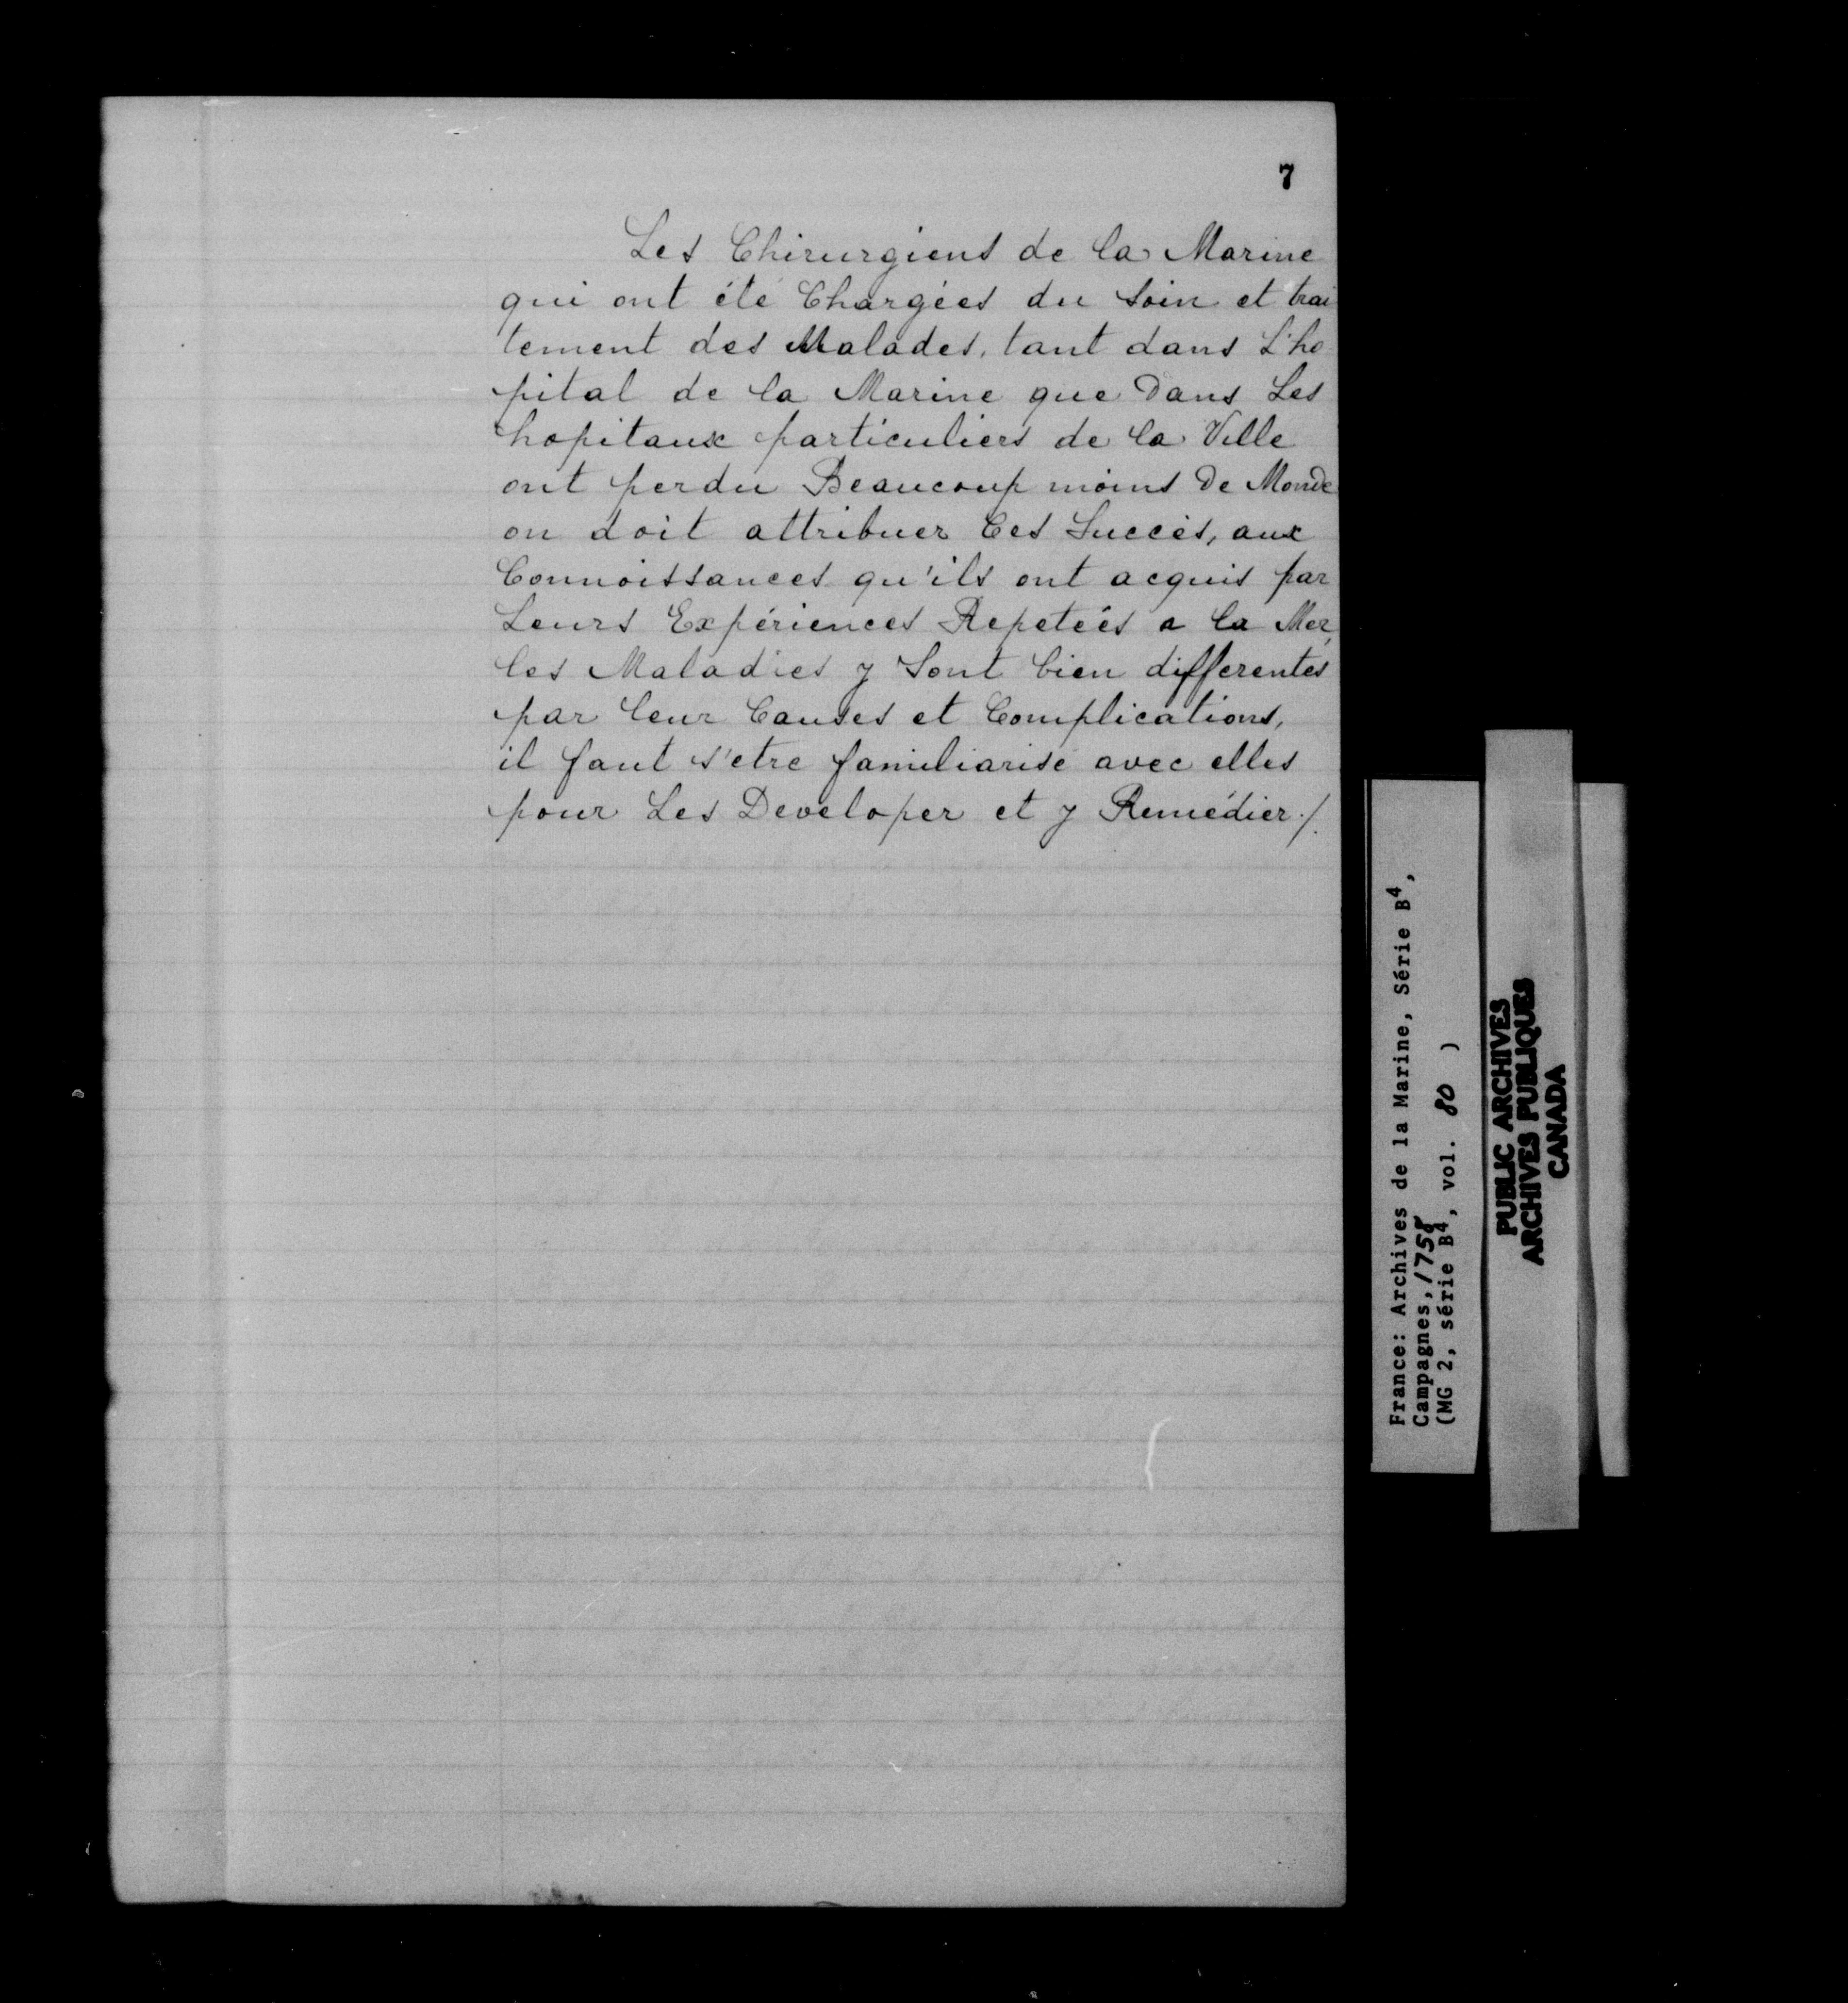 7
Les Chirurgiens de la Marine
qui ont été Chargées du soin et trai
tement des Malades, tant dans L'ho
pital de la Marine que dans Les
hopitaux particuliers de la Ville
ont perdu Beaucoup moins de Monde
on doit attribuer Ces Succès, aux
Connoissances qu'ils ont acquis par
Leurs Expériences Repeteés a la Mer,
les Maladies y Sont bien differentes
par leur Causes et Complications,
il faut s'etre familiarisé avec elles
pour Les Developer et y Remédier ./.
France: Archives de la Marine, Série B4,
Campagnes, 1758
(MG 2, série B4, vol. 80 )
PUBLIC ARCHIVES
ARCHIVES PUBLIQUES
CANADA